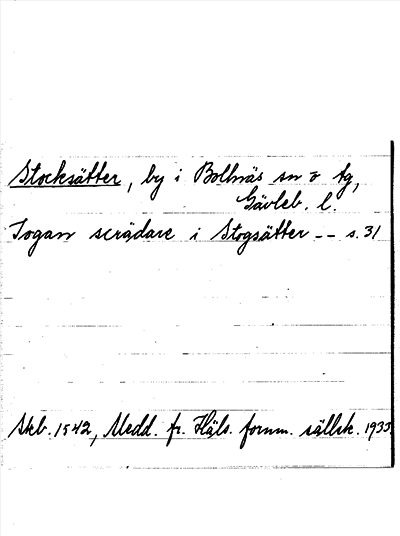 Stocksätter, by i Bollnäs sn o tg,
Gävleb. l.
Jogan scrädare i Stogsätter -- s. 31
Skb. 1542, Medd. fr. Häls. fornm. sällsk. 1935